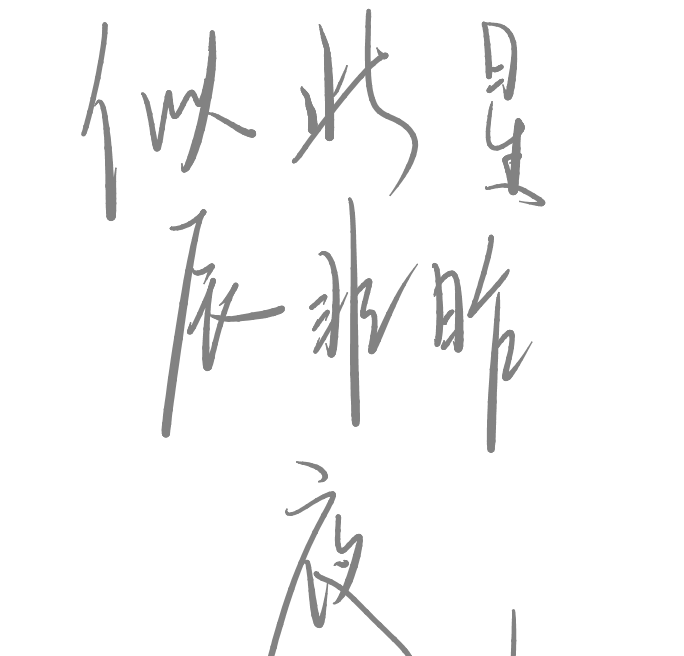 似此星
辰非昨
夜